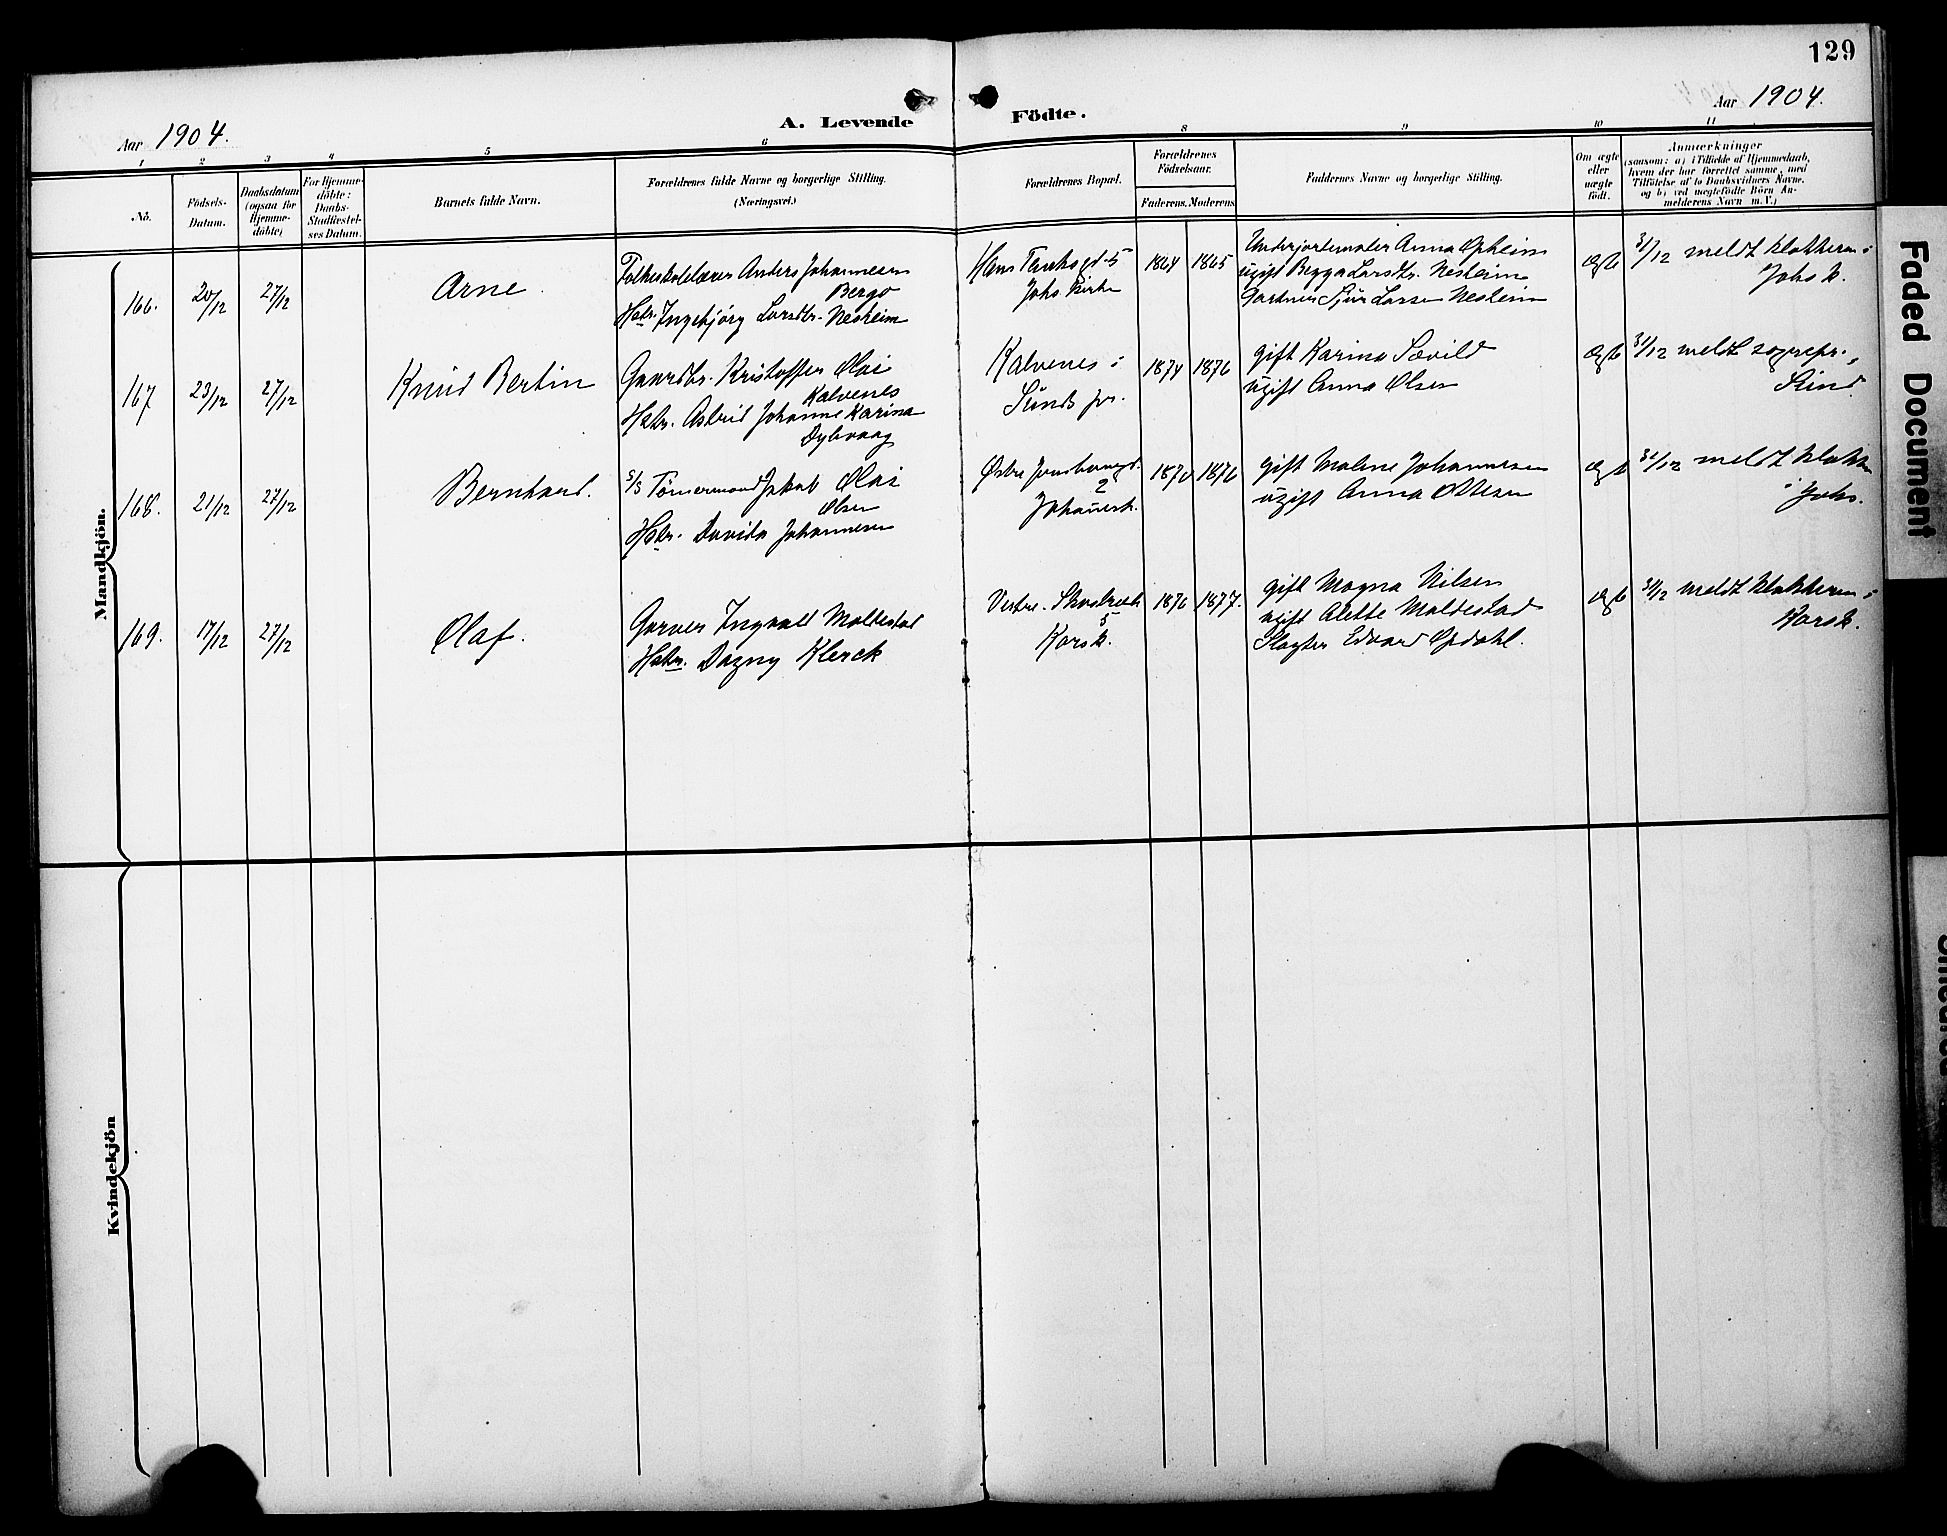 129
Aar 1904.
A. Levende Födte.
Aar 1904.
1 2 3 4 5 6 8 9 10 11
No.
Födsels-
Datum.
Daabsdatum
(ogsaa for
Hjemme-
döbte)
For Hjemme-
döbte:
Daabs-
Stadfæstel-
ses Datum.
Barnets fulde Navn.
Forældrenes fulde Navne og borgerlige Stilling.
(Næringsvei.)
Forældrenes Bopæl.
Forældrenes
Födselsaar.
Faderens. Moderens.
Faddernes Navne og borgerlige Stilling.
Om ægte
eller
uægte
födt.
Anmærkninger
(saasom: a) i Tilfælde af Hjemmedaab,
hvem der har forrettet samme, med
Tilföielse af to Daabsvidners Navne.
og b) ved uægtefödte Börn An-
melderens Navn m. V.)
Mandkjön.
166. 20/12 27/12 Arne.
Folkeskolelærer Anders Johannesen
Bergo
Hstr. Ingebjørg Larsdtr. Nesheim
Hans Tanksgd. 5
Johs Kirke
1864 1865
Anna Opheim
ugift Larsdtr. Nesheim
Gartner Sjur Larsen Nesheim
ægte
31/12 meldt klokkeren i
Johs k.
167 23/12 27/12 Knud Bertin
Gaardbr. Kristoffer Olai
Kalvenes
Hstr. Astrid Johanne Karina
Dybvaag
Kalvenes i
Sunds pr.
1874 1876
gift Karina Sævild
ugift Anna Olsen
ægte
31/12 meldt sognepr. i
Sund.
168. 21/12 27/12 Bernhard.
S/S Tømermand Jakob Olai
Olsen
Hstr. Davida Johannesen
Østre
2
Johannesk.
1870 1876
gift Malene Johannesen
ugift Anna Ottesen
ægte
31/12 meldt klokk
i Johs.
169. 17/12 27/12 Olaf.
Garver Ingvald Moldestad
Hstr. Dagny Klerck
Vestre.
5
Korsk.
1876 1877.
gift Magna Nilsen
ugift Alette Moldestad
Slagter Edvard Opdahl.
ægte
31/12 meldt klokkeren i
Korsk.
Kvindekjön
Faded Document